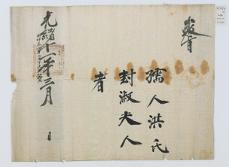 敎旨
孺人洪氏
封淑夫人
者
光緖十一年三月 日